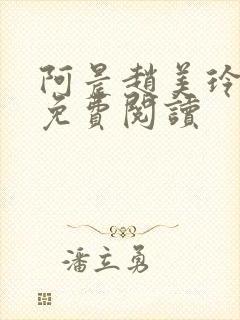 阿晨趙美玲
免費閱讀
潘立勇